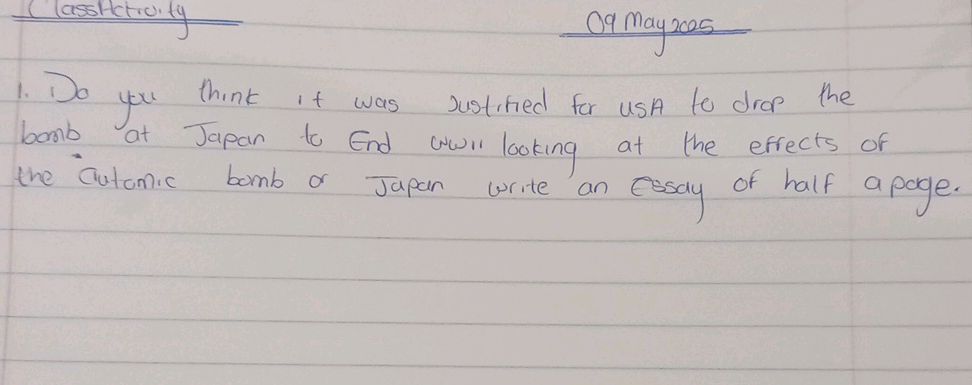 Class Activity
09 May 2025
1. Do you think it was Justified for USA to drop the
bomb at Japan to End WWII looking at the effects of
the Autamic bomb or Japan write an Essay of half a page.